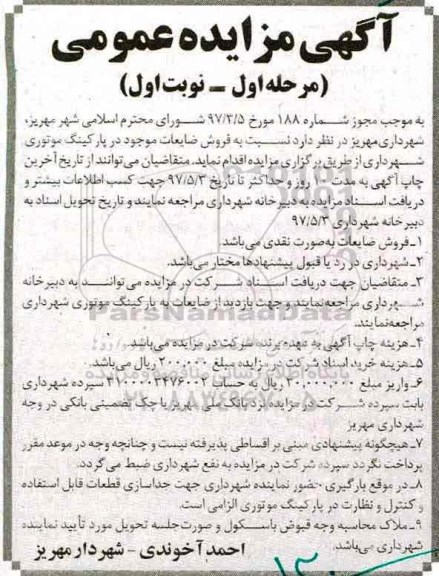 آگهی مزایده عمومی
(مرحله اول – نوبت اول)
به موجب مجوز شماره ۱۸۸ مورخ ۹۷/۲/۵ شورای محترم اسلامی شهر مهریز،
شهرداری مهریز در نظر دارد نسبت به فروش ضایعات موجود در پارکینگ موتوری
شهرداری از طریق برگزاری مزایده اقدام نماید. متقاضیان می‌توانند از تاریخ آخرین
چاپ آگهی به مدت روز و حداکثر تا تاریخ ۹۷/۵/۳ جهت کسب اطلاعات بیشتر و
دریافت اسناد مزایده به دبیرخانه شهرداری مراجعه نمایند و تاریخ تحویل اسناد به
دبیرخانه شهرداری ۹۷/۵/۳
۱-فروش ضایعات به‌صورت نقدی می‌باشد
۲-شهرداری در رد یا قبول پیشنهادها مختار می‌باشد.
۳-متقاضیان جهت دریافت اسناد شرکت در مزایده می‌توانند به دبیرخانه
شهرداری مراجعه نمایند و جهت بازدید از ضایعات به پارکینگ موتوری شهرداری
مراجعه نمایند.
ParsNamadData
۴-هزینه چاپ آگهی به عهده برنده شرکت در مزایده می‌باشد
۵-هزینه خرید اسناد شرکت در مزایده مبلغ ۲۰۰،۰۰۰ ریال می‌باشد.
۶-واریز مبلغ ۲۰،۰۰۰،۰۰۰ ریال به حساب سپرده شهرداری
بابت سپرده شرکت در مزایده نزد بانک ملی مهریز یا چک تضمینی بانکی در وجه
شهرداری مهریز
۷-هیچگونه پیشنهادی مبنی بر اقساطی پذیرفته نیست و چنانچه وجه در موعد مقرر
پرداخت نگردد سپرده شرکت در مزایده به نفع شهرداری ضبط می‌گردد.
۸-در موقع بارگیری حضور نماینده شهرداری جهت جداسازی قطعات قابل استفاده
و کنترل و نظارت در پارکینگ موتوری الزامی است.
۹-ملاک محاسبه وجه قبوض باسکول و صورت‌جلسه تحویل مورد تأیید نماینده
شهرداری می‌باشد.
احمد آخوندی - شهردار مهریز